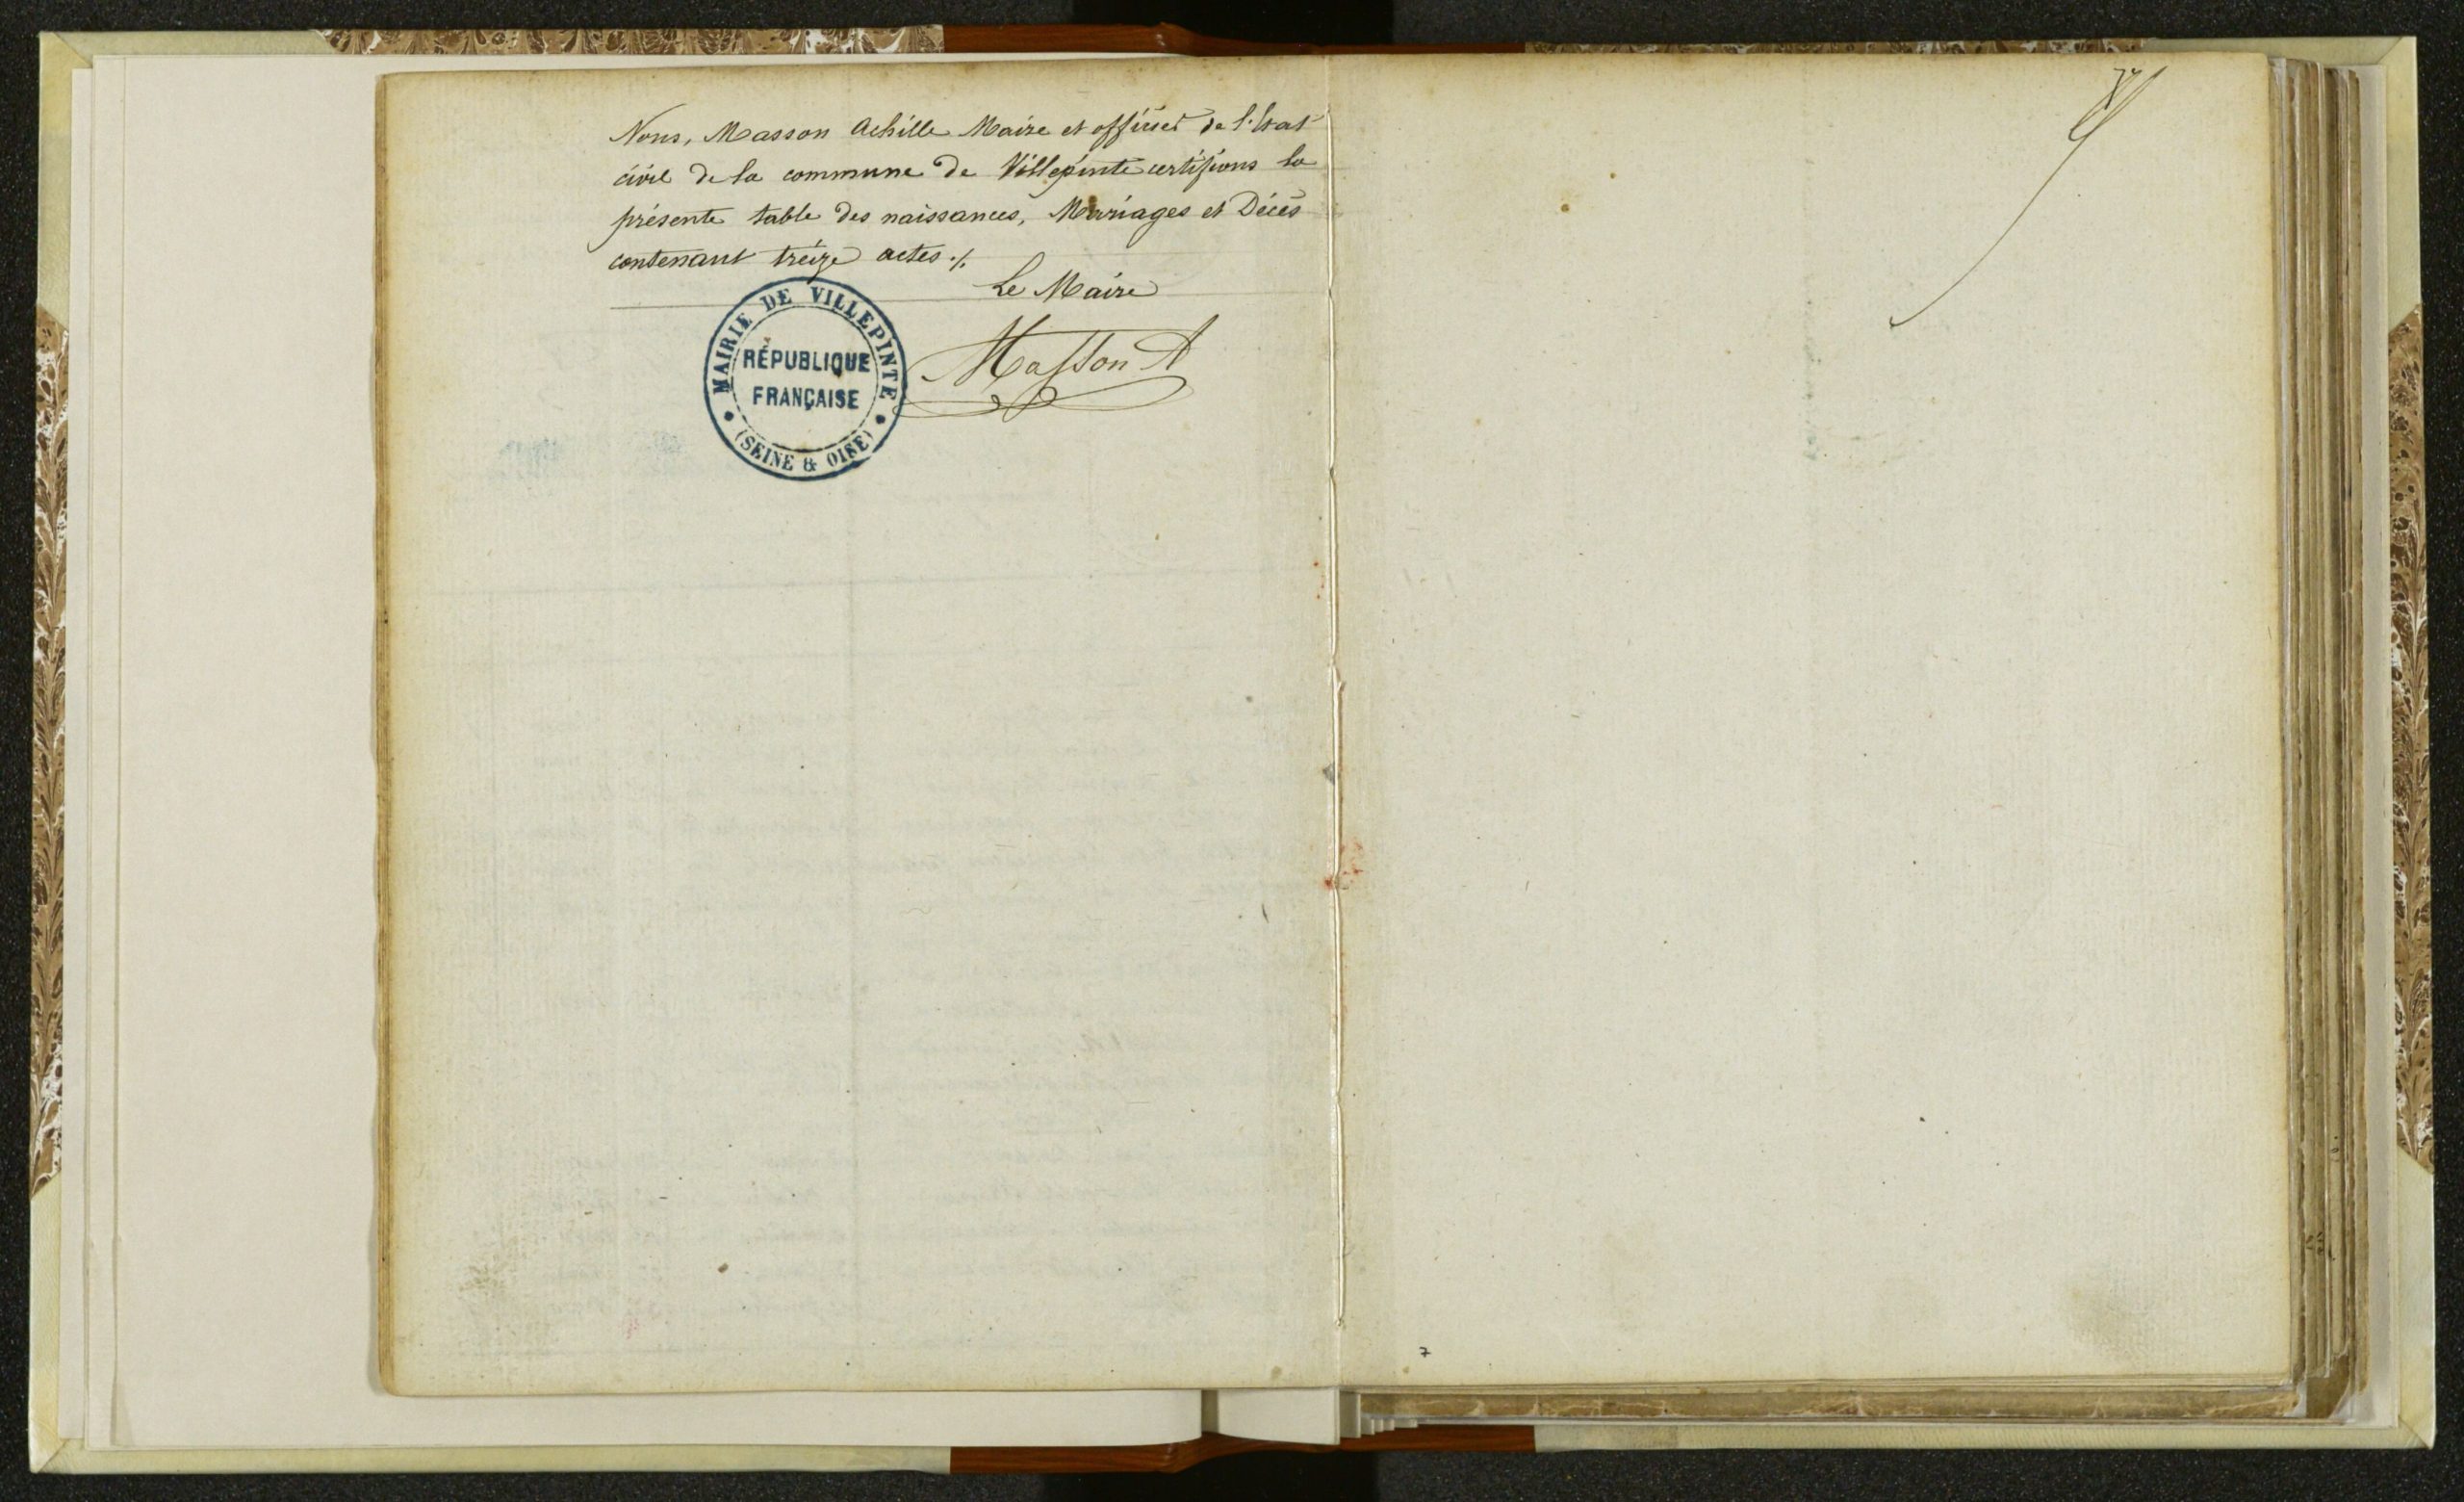 Nous, Masson Achille Maire et officier de l'Etat
civil de la commune de Villepinte certifions la
présente table des naissances, Mariages et Décès
contenant treize actes ./.
Le Maire
Masson A
MAIRIE DE VILLEPINTE
RÉPUBLIQUE
FRANÇAISE
(SEINE & OISE)
7